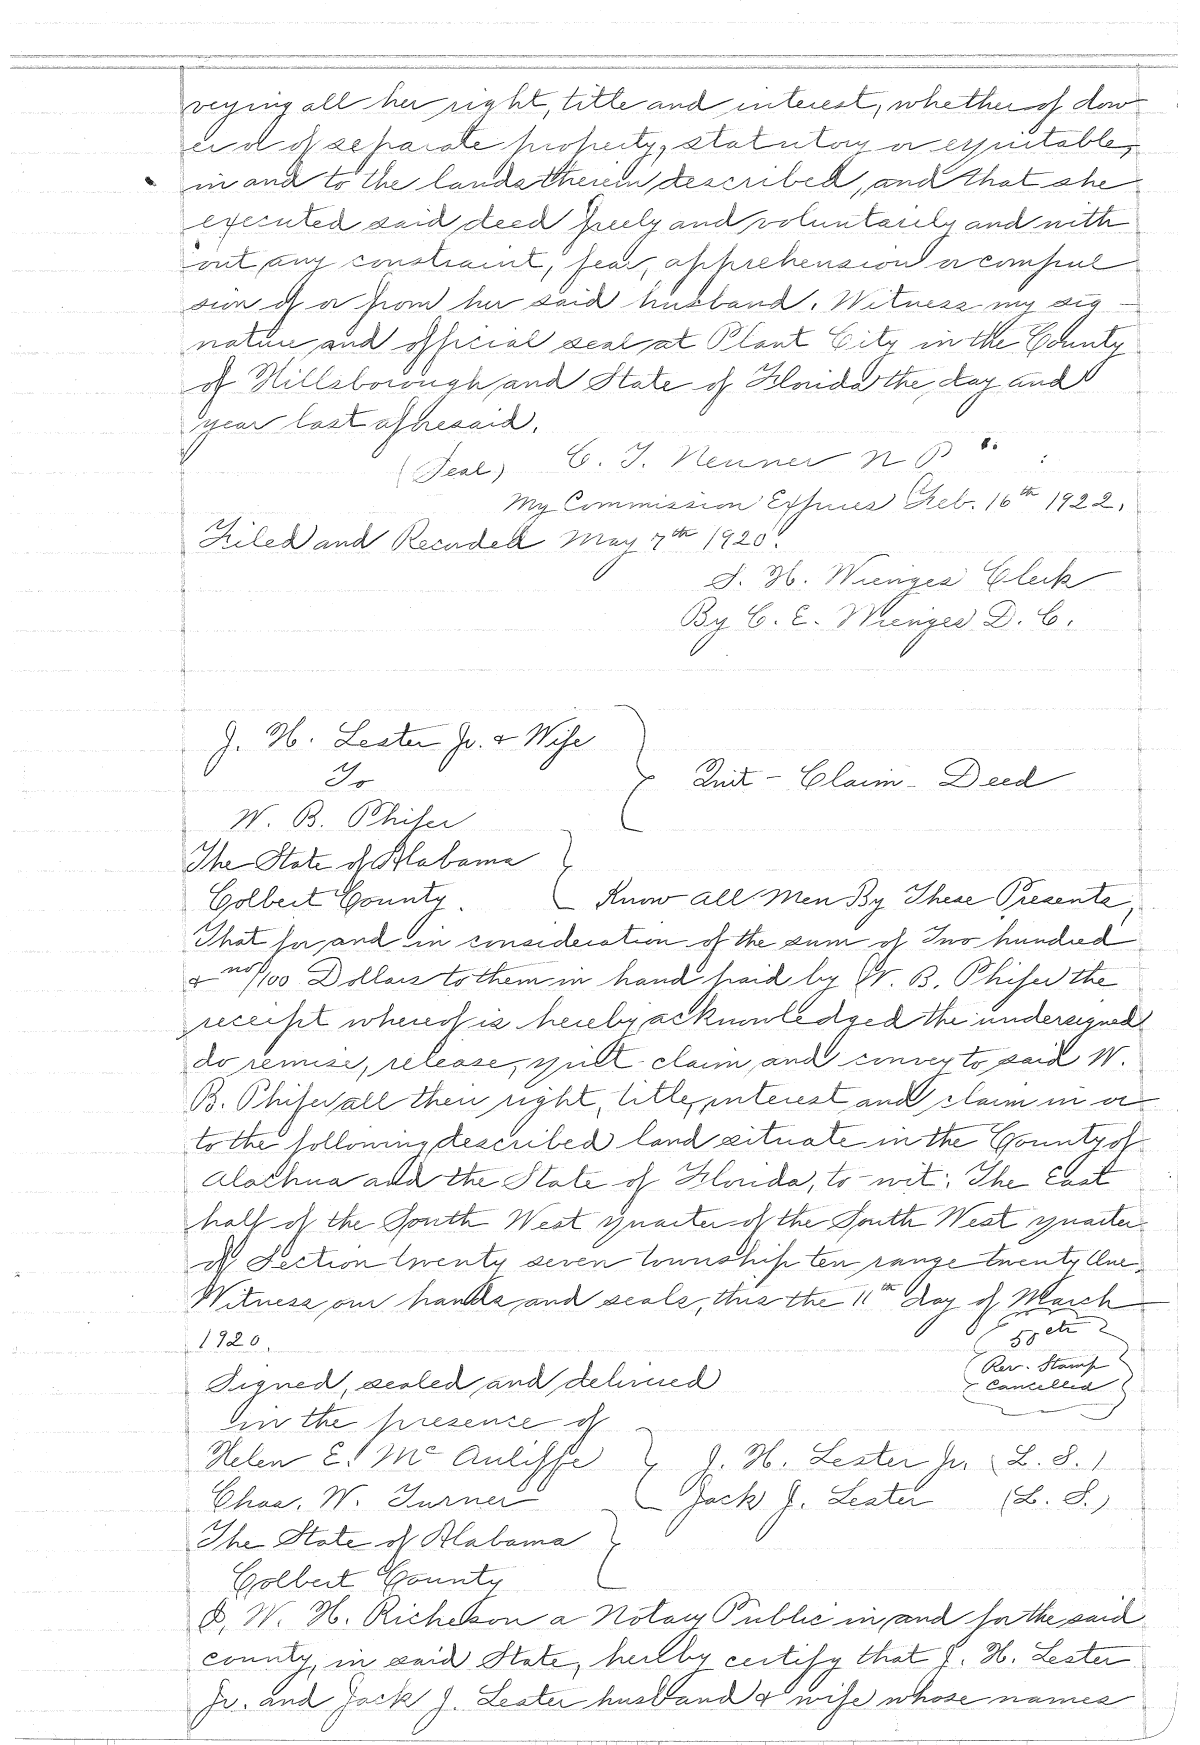 veying all her right, title and interest, whether of dow
er or of separate property, statutory or equitable,
in and to the lands therein described, and that she
executed said deed freely and voluntarily and with
out any constraint, fear, apprehension or compul
sion of or from her said husband. Witness my sig-
nature and official seal at Plant City in the County
of Hillsborough and State of Florida the day and
year last aforesaid.
(Seal) C. T. Nenner N P
My Commission Expires Feb. 16th 1922.
Filed and Recorded May 7th 1920.
S. H. Wienges Clerk
By C. E. Wienges D. C.
J. H. Lester Jr. & Wife
To
Quit-Claim-Deed
W. B. Phifer
The State of Alabama
Colbert County. Know All Men By These Presents,
That for and in consideration of the sum of Two hundred
& no/100 Dollars to them in hand paid by W. B. Phifer the
receipt whereof is hereby acknowledged the undersigned
do remise, release, quit-claim and convey to said W.
B. Phifer all their right, title, interest and claim in or
to the following described land situate in the County of
Alachua and the State of Florida, to-wit: The East
half of the South West quarter of the South West quarter
of Section twenty seven township ten range twenty One.
Witness our hands and seals, this the 11th day of March
1920.
50cts
Rev. Stamp
Cancelled
Signed, sealed and delivered
in the presence of
Helen E. Mc Auliffe J. H. Lester Jr. (L. S.)
Chas. W. Turner Jack J. Lester (L. S.)
The State of Alabama
Colbert County
I, W. H. Richeson a Notary Public in and for the said
county, in said State, hereby certify that J. H. Lester
Jr. and Jack J. Lester husband & wife whose names